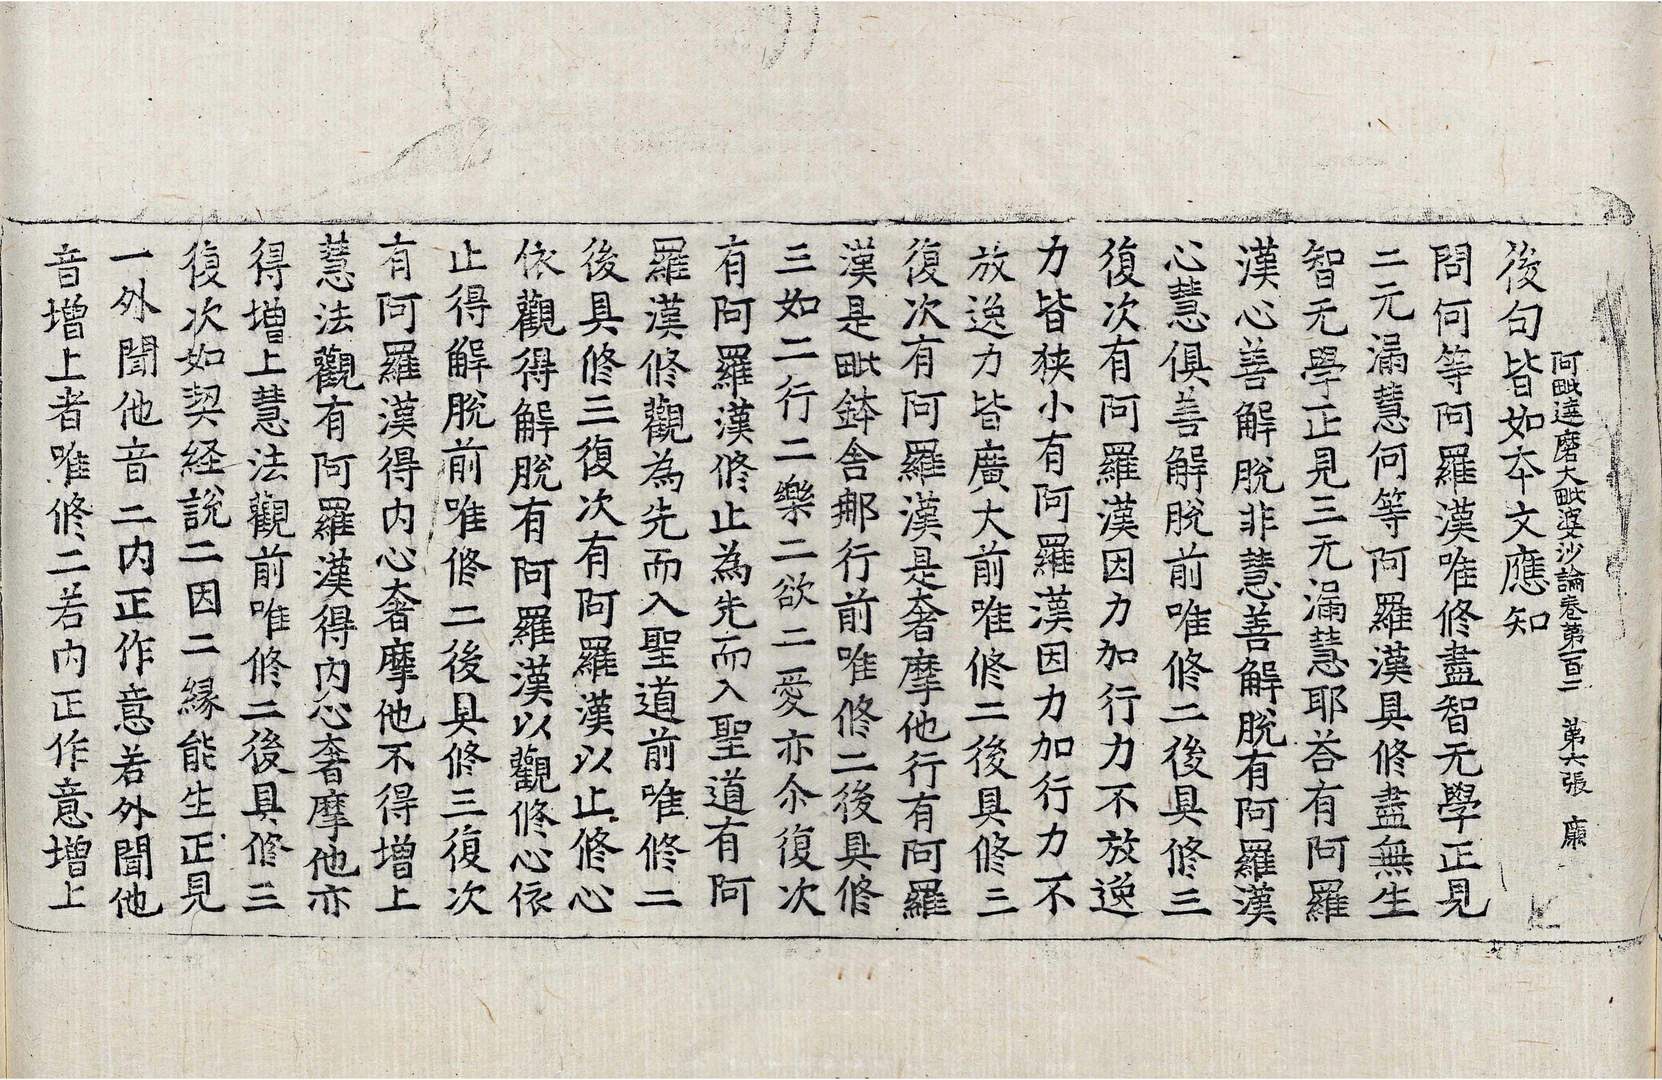 阿毗達磨大毗婆沙論卷第一百二 第六張 廉
後句皆如本文應知
問何等阿羅漢唯修盡智无學正見
二无漏慧何等阿羅漢具修盡無生
智无學正見三无漏慧耶荅有阿羅
漢心善解脫非慧善解脫有阿羅漢
心慧俱善解脫前唯修二後具修三
復次有阿羅漢因力加行力不放逸
力皆狹小有阿羅漢因力加行力不
放逸力皆廣大前唯修二後具修三
復次有阿羅漢是奢摩他行有阿羅
漢是毗鉢舍那行前唯修二後具修
三如二行二樂二欲二愛亦尒復次
有阿羅漢修止為先而入聖道有阿
羅漢修觀為先而入聖道前唯修二
後具修三復次有阿羅漢以止修心
依觀得解脫有阿羅漢以觀修心依
止得解脫前唯修二後具修三復次
有阿羅漢得內心奢摩他不得增上
慧法觀有阿羅漢得內心奢摩他亦
得增上慧法觀前唯修二後具修三
復次如契經說二因二緣能生正見
一外聞他音二內正作意若外聞他
音增上者唯修二若內正作意增上